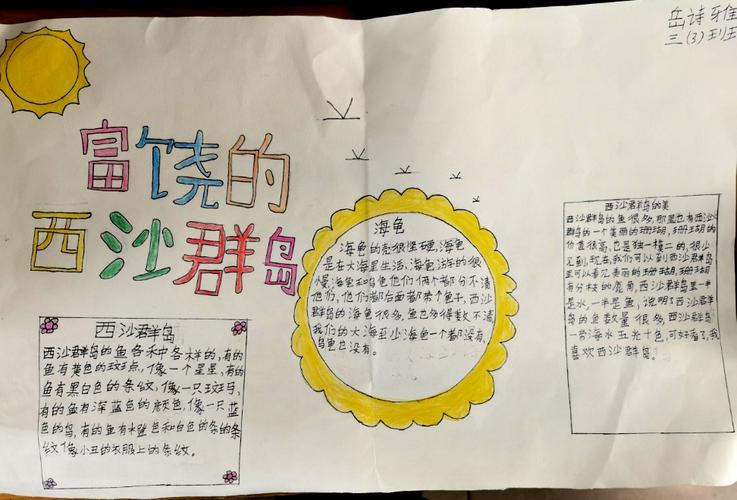 岳诗雅
三(3)班
富饶的
西沙群岛
西沙群岛
西沙群岛的鱼各种各样的,有的
鱼有黄色的斑点,像一个星星,有的
鱼有黑白色的条纹,像一只斑马,
有的鱼有深蓝色的颜色,像一只蓝
色的鸟,有的鱼有橙色和白色的条的条
纹像小丑的衣服上的条纹。
海龟
海龟的壳很坚硬,海龟
是在大海里生活,海龟游的很
慢,海龟和乌龟他们俩个都分不清
他们,他们都后面都带个龟子,西沙
群岛的海龟很多,鱼也多得数不清
我们的大海至少海龟一个都没有,
乌龟也没有。
西沙群岛的美
西沙群岛的鱼很多,那里也有西沙
群岛的一个美丽的珊瑚,珊瑚的
价值很高,也是独一橦二的,很少
见到,现在,我们可以到西沙群岛
里可以看见美丽的珊瑚,珊瑚
有分枝的鹿角,西沙群岛里一半
是水,一半是鱼,说明了西沙群
岛的鱼数量很多,西沙群岛
一带海水五光十色,可好看了,我
喜欢西沙群岛。